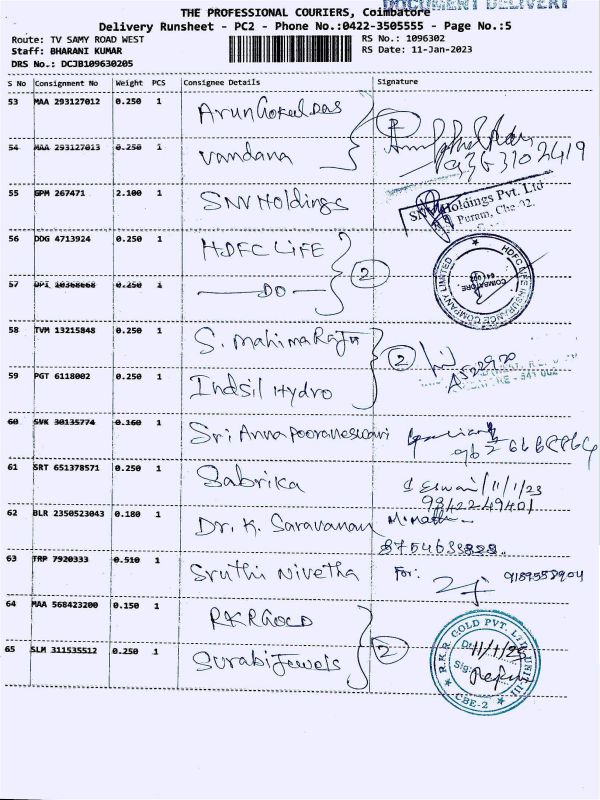 DOCUMENT DELIVERY
THE PROFESSIONAL COURIERS, Coimbatore
Delivery Runsheet - PC2 - Phone No.:0422-3505555 - Page No.:5
Route: TV SAMY ROAD WEST RS No.: 1096302
Staff: BHARANI KUMAR RS Date: 11-Jan-2023
DRS No.: DCJB109630205
S No Consignment No Weight PCS Consignee Details Signature
53 MAA 293127012 0.250 1 ArunGokulDas 2
54 MAA 293127013 0.250 1 vandana 9363102419
55 GPM 267471 2.100 1 SNV Holdings SNV Holdings Pvt. Ltd
R S Puram, Cbe-02.
56 DDG 4713924 0.250 1 HDFC LIFE 2 HDFC LIFE INSURANCE COMPANY LIMITED
COIMBATORE
641 002
57 DPI 10368668 0.250 1 DO
58 TVM 13215848 0.250 1 S. Mahima Raju 2
59 PGT 6118002 0.250 1 Indsil Hydro 641 002
60 SVK 30135774 0.160 1 Sri Annapooraneswari
61 SRT 651378571 0.250 1 Sabrika Eswari/11/1/23
9842249401
62 BLR 2350523043 0.180 1 Dr. K. Saravanan
63 TRP 7920333 0.510 1 Sruthi Nivetha For:
64 MAA 568423200 0.150 1 RKRGOLD 2 R.K.R GOLD PVT. LTD UNIT-III
65 SLM 311535512 0.250 1 Surabi Jewels Dt: 11/1/23
Sig:
CBE-2